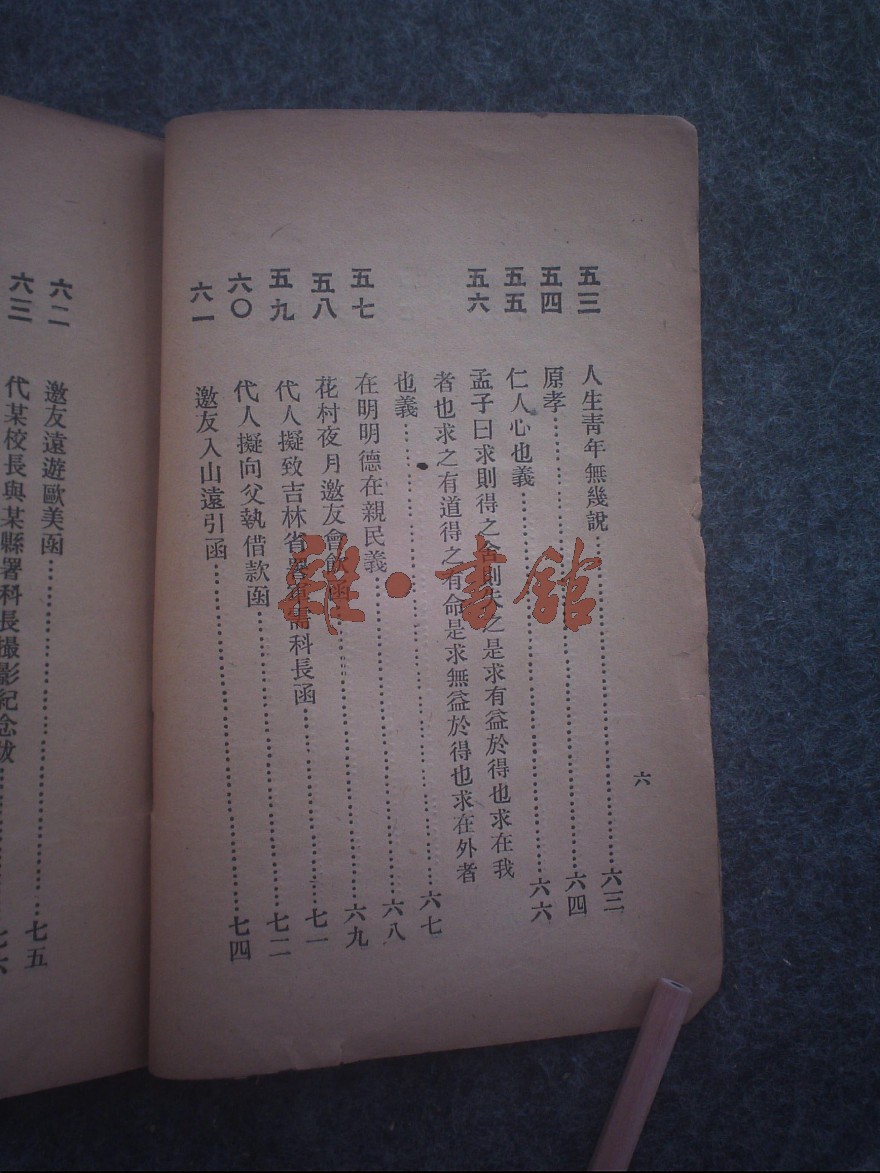 六
五三 人生靑年無幾說 六三
五四 原孝 六四
五五 仁人心也義 六六
五六 孟子曰求則得之舍則失之是求有益於得也求在我
者也求之有道得之有命是求無益於得也求在外者
也義 六七
五七 在明明德在親民義 六八
五八 花村夜月邀友會飲函 六九
五九 代人擬致吉林省署軍需科長函 七一
六〇 代人擬向父執借款函 七二
六一 邀友入山遠引函 七四
六二 邀友遠遊歐美函 七五
六三 代某校長與某縣署科長撮影紀念跋 七六
雜·書館